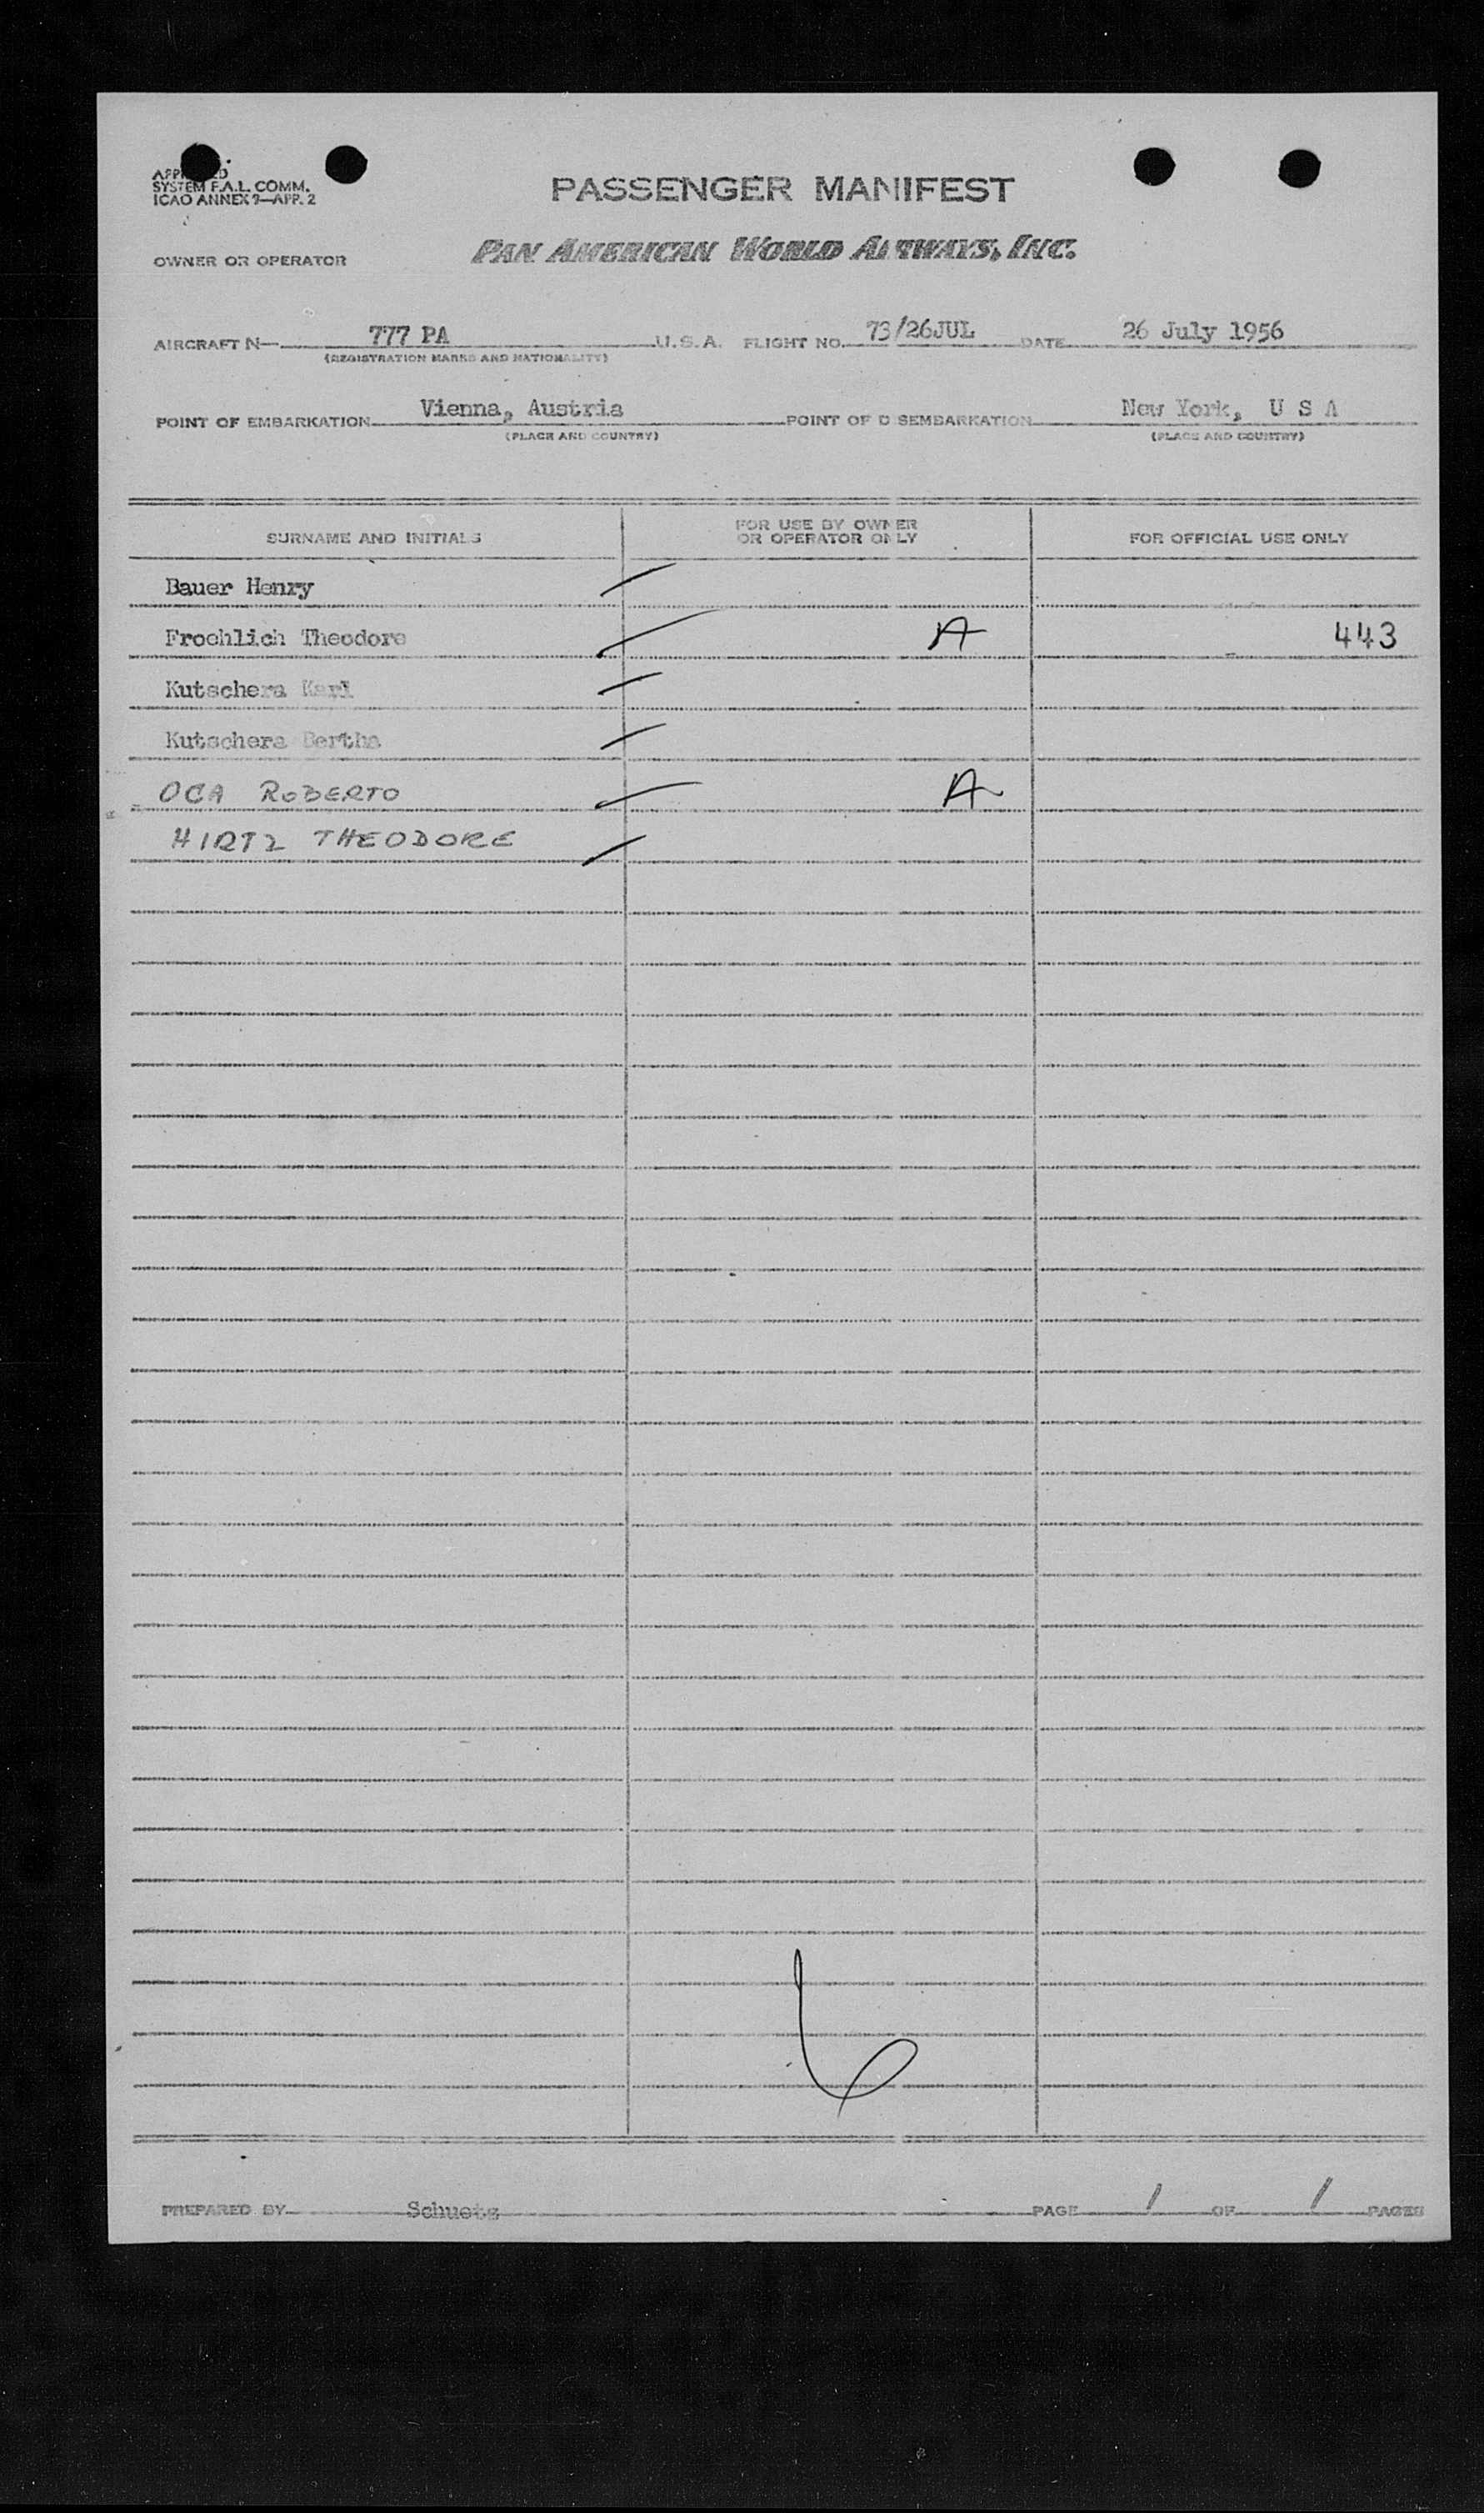 SYSTEM F.A.L. COMM.
ICAO ANNEX 9—APP. 2
PASSENGER MANIFEST
OWNER OR OPERATOR
PAN AMERICAN WORLD AIRWAYS, INC.
AIRCRAFT N— 777 PA U.S.A. FLIGHT NO. 73/26JUL DATE 26 July 1956
(REGISTRATION MARKS AND NATIONALITY)
POINT OF EMBARKATION Vienna, Austria POINT OF DISEMBARKATION New York, U S A
(PLACE AND COUNTRY) (PLACE AND COUNTRY)
SURNAME AND INITIALS FOR USE BY OWNER OR OPERATOR ONLY FOR OFFICIAL USE ONLY
Bauer Henry
Froehlich Theodore A 443
Kutschera Karl
Kutschera Bertha
OCA ROBERTO A
HIRTZ THEODORE
6
PREPARED BY Schuetz PAGE 1 OF 1 PAGES